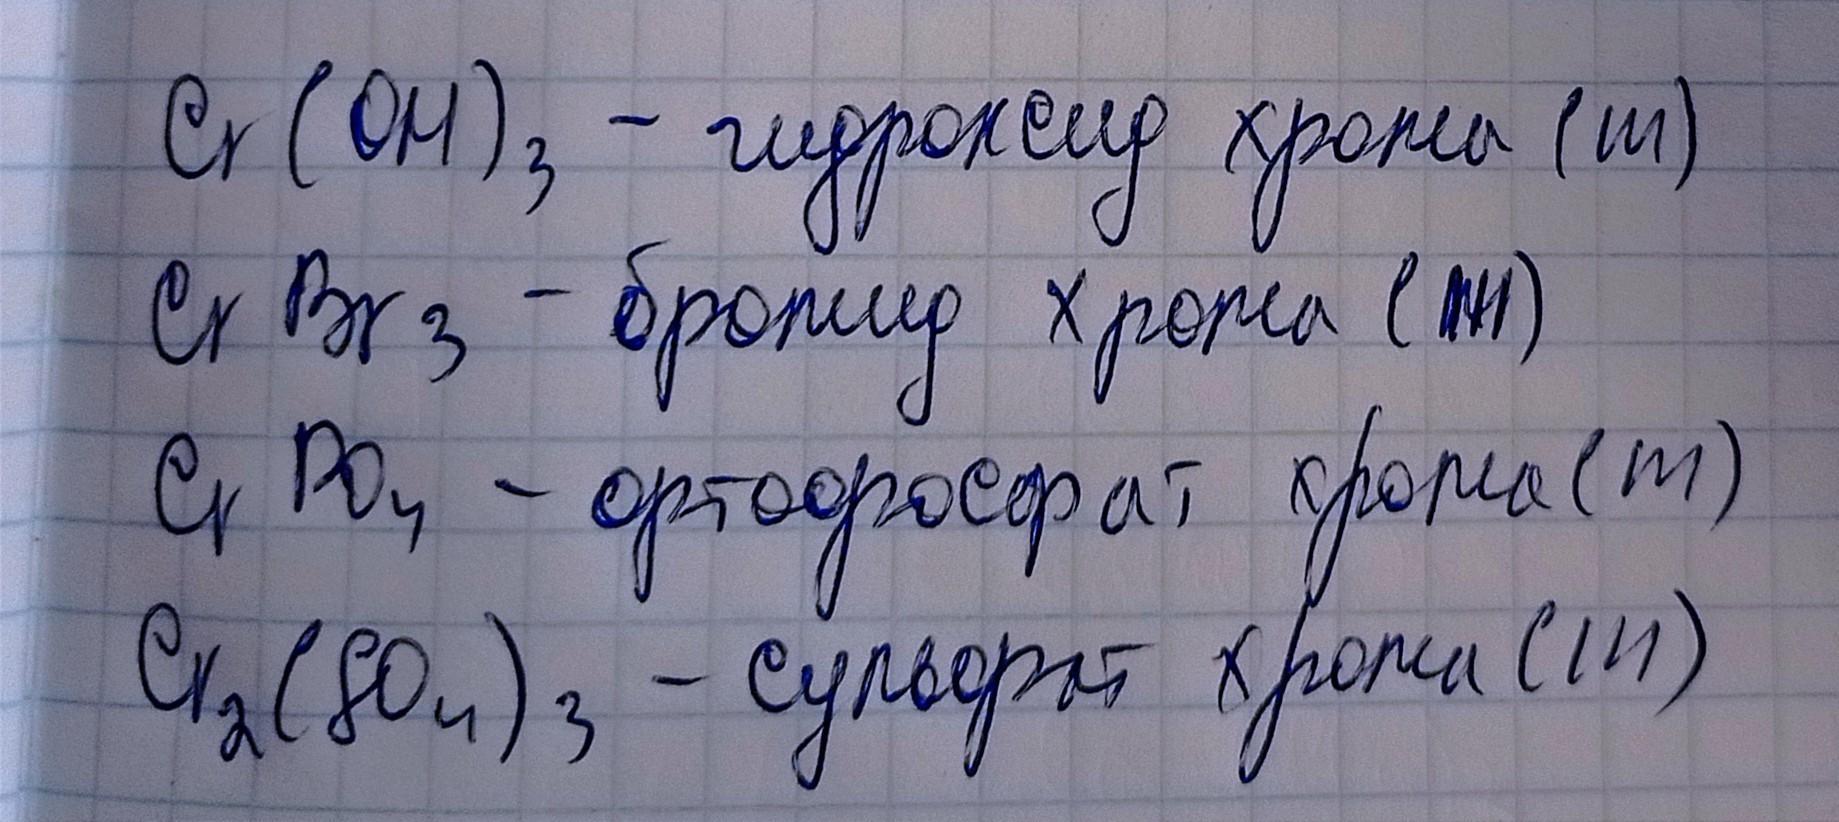 Cr(OH)₃ - гидроксид хрома (III)
CrBr₃ - бромид хрома (III)
CrPO₄ - ортофосфат хрома (III)
Cr₂(SO₄)₃ - сульфат хрома (III)